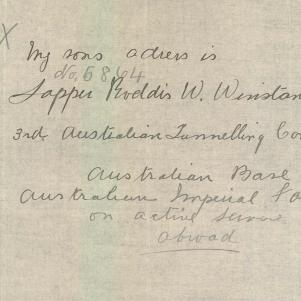 X
My sons adress is
No. 5864
Sapper Roddis W. Winstan
3rd Australian Tunnelling Co
Australian Base
Australian Imperial Fo
on active service
abroad